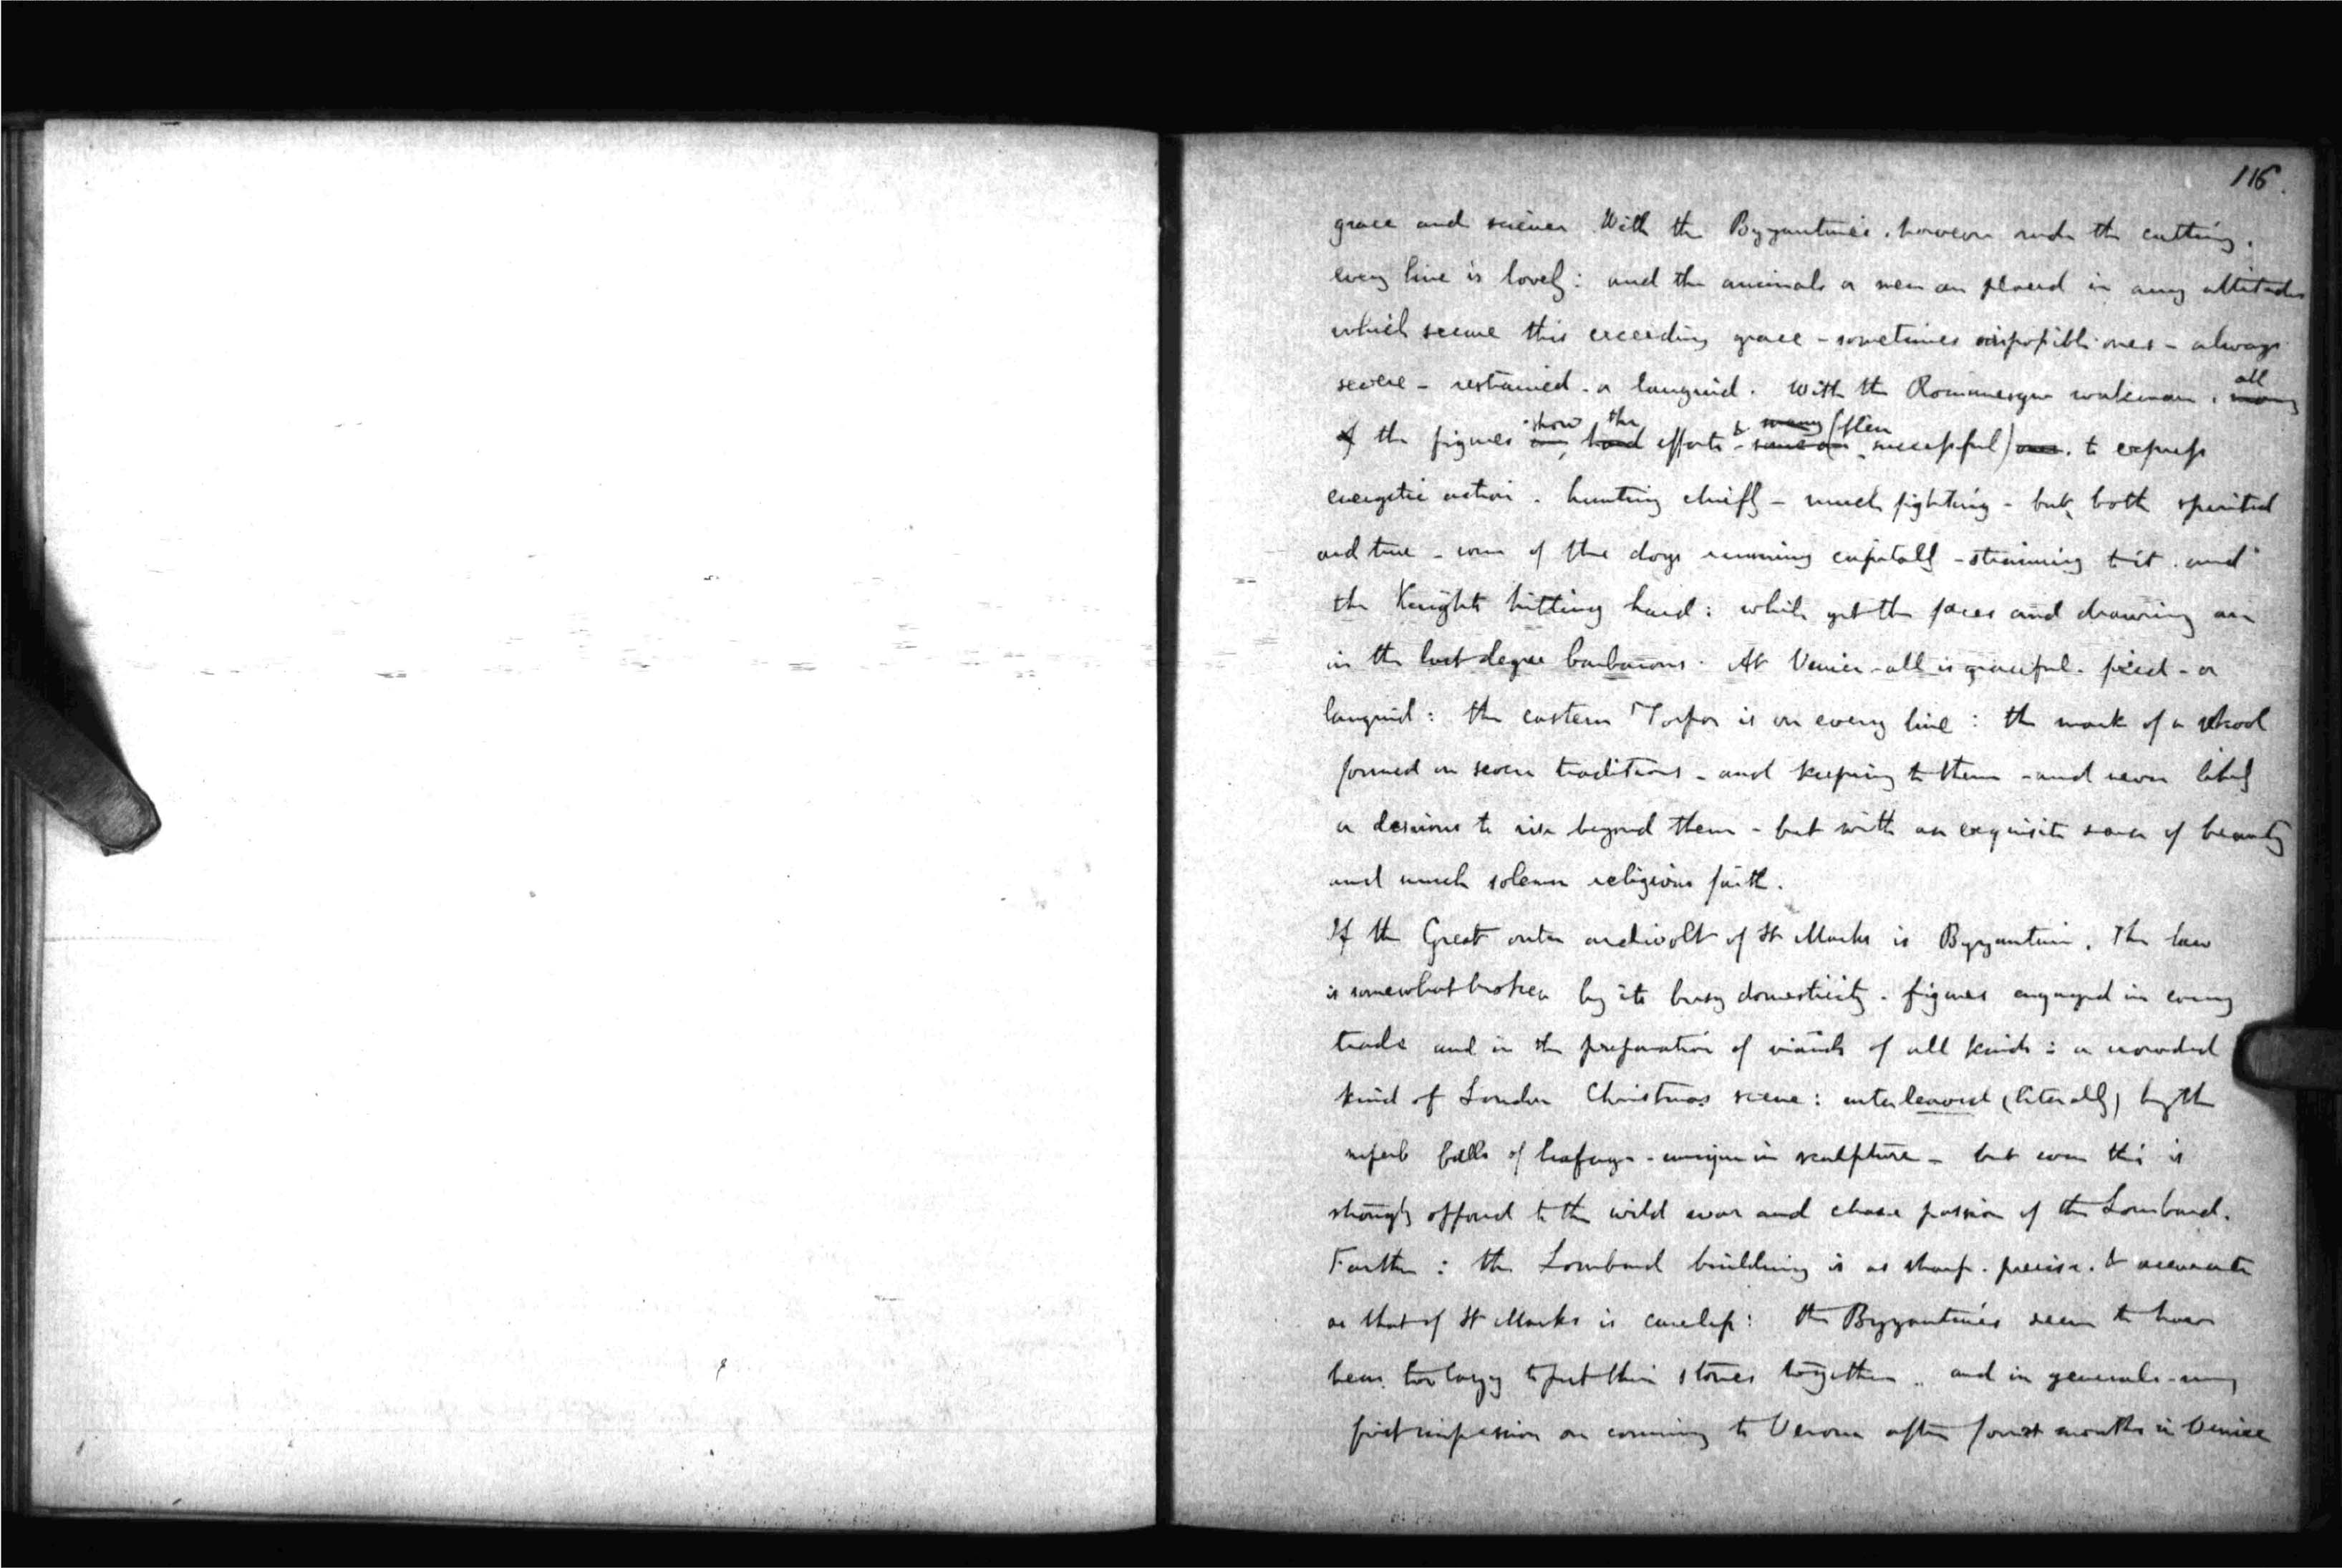 116.
grace and science. With the Byzantines, however rude the cutting,
every line is lovely: and the animals or men are placed in any attitudes
which secure this exceeding grace - sometimes impossible ones - always
severe - restrained - or languid. With the Romanesque workman, all many
of the figures show the hard efforts - & many (often successful) ones. to express
energetic action. hunting chiefly - much fighting - but both spirited
and true - some of the dogs running capitally - straining to it. and
the Knights hitting hard: while yet the faces and drawing are
in the last degree barbarous. At Venice - all is graceful. fixed - or
languid: the eastern Torpor is on every line: the mark of a school
formed on severe traditions - and keeping to them - and never likely
or desirous to rise beyond them - but with an exquisite sense of beauty
and much solemn religious faith.
If the Great outer archivolt of St Marks is Byzantine, The law
is somewhat broken by its busy domesticity. figures engaged in every
trade and in the preparation of viands of all kinds: a crowded
kind of London Christmas scene: interleaved (literally) by the
superb balls of leafage - unique in sculpture - but even this is
strongly opposed to the wild war and chase passion of the Lombard.
Farther: the Lombard building is as sharp. precise. & accurate
as that of St Marks is careless: the Byzantines seem to have
been too lazy to put their stones together.. and in general - my
first impression on coming to Verona after four months in Venice